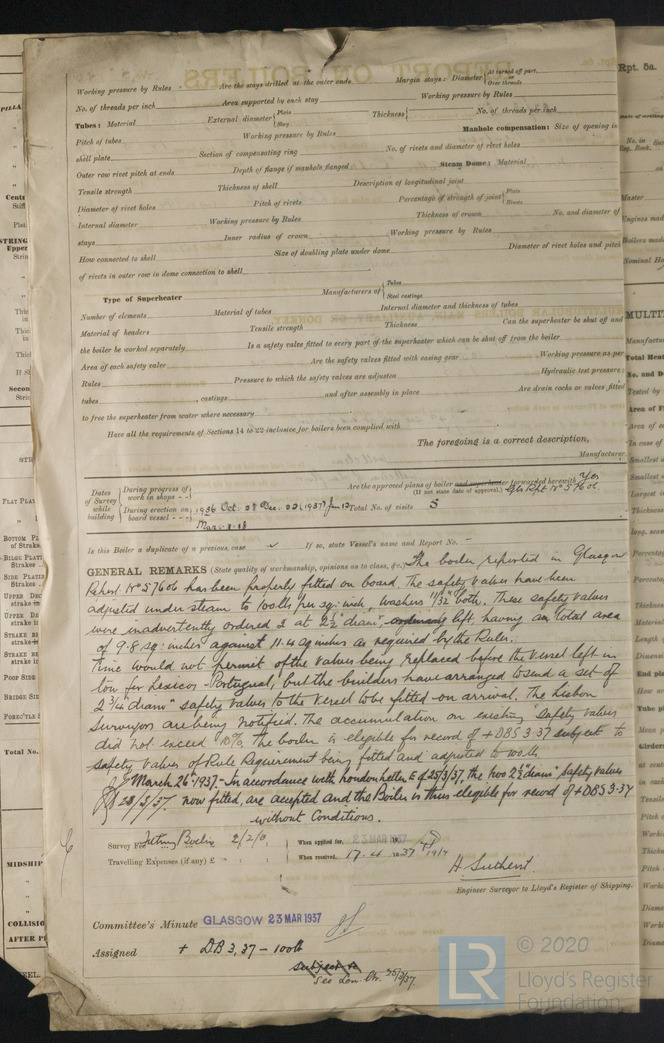 Working pressure by Rules Are the stays drilled at the outer ends Margin stays: Diameter {At turned off part, Over threads
No. of threads per inch Area supported by each stay Working pressure by Rules
Tubes: Material External diameter {Plain Stay Thickness { No. of threads per inch
Pitch of tubes Working pressure by Rules Manhole compensation: Size of opening in
shell plate Section of compensating ring No. of rivets and diameter of rivet holes
Outer row rivet pitch at ends Depth of flange if manhole flanged Steam Dome: Material
Tensile strength Thickness of shell Description of longitudinal joint
Diameter of rivet holes Pitch of rivets Percentage of strength of joint {Plate Rivets
Internal diameter Working pressure by Rules Thickness of crown No. and diameter of
stays Inner radius of crown Working pressure by Rules
How connected to shell Size of doubling plate under dome Diameter of rivet holes and pitch
of rivets in outer row in dome connection to shell
Type of Superheater Manufacturers of {Tubes Steel castings
Number of elements Material of tubes Internal diameter and thickness of tubes
Material of headers Tensile strength Thickness Can the superheater be shut off and
the boiler be worked separately Is a safety valve fitted to every part of the superheater which can be shut off from the boiler
Area of each safety valve Are the safety valves fitted with easing gear Working pressure as per
Rules Pressure to which the safety valves are adjusted Hydraulic test pressure:
tubes , castings and after assembly in place Are drain cocks or valves fitted
to free the superheater from water where necessary
Have all the requirements of Sections 14 to 22 inclusive for boilers been complied with
The foregoing is a correct description,
Manufacturer.
Dates of Survey while building {During progress of work in shops - - Are the approved plans of boiler and superheater forwarded herewith Yes
(If not state date of approval.) Gls Rpt. No 57606.
During erection on board vessel - - 1936 Oct. 28 Dec. 22 (1937) Jan 13 Total No. of visits 5
Mar. 8. 18
Is this Boiler a duplicate of a previous case ✓ If so, state Vessel's name and Report No. -
GENERAL REMARKS (State quality of workmanship, opinions as to class, &c.) The boiler reported in Glasgow
Report No 57606 has been properly fitted on board. The safety valves have been
adjusted under steam to 100 lbs per sq: inch, washers 11/32" both. These safety valves
were inadvertently ordered 2 at 2½" diam: left, having an total area
of 9.8 sq: inches against 11.4 sq inches as required by the Rules.
Time would not permit of the valves being replaced before the vessel left in
tow for Lexicos - Portugal, but the builders have arranged to send a set of
2¾" diam: safety valves to the vessel to be fitted on arrival. The Lisbon
Surveyors are being notified. The accumulation on existing safety valves
did not exceed 10%. The boiler is eligible for record of + DBS 3.37 subject to
safety valves of Rule Requirement being fitted and adjusted to 100 lbs.
March 26th 1937 - In accordance with London letter E of 25/3/37, the two 2½" diam: Safety Valves
now fitted, are accepted and the Boiler is thus eligible for record of + DBS 3-37
without Conditions.
Survey Fee 2/2/0 When applied for, 23 MAR 1937
Travelling Expenses (if any) £ When received, 17.4.1937
H. Sutherst.
Engineer Surveyor to Lloyd's Register of Shipping.
Committee's Minute GLASGOW 23 MAR 1937
Assigned + DB 3,37 - 100 lb
subject to
See Lon. Ltr. 25/3/37.
© 2020
LR Lloyd's Register
Foundation
Rpt. 5a.